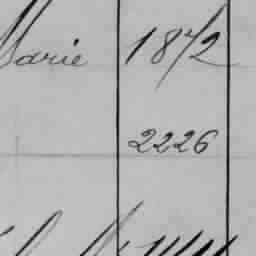 Marie 1872
2226